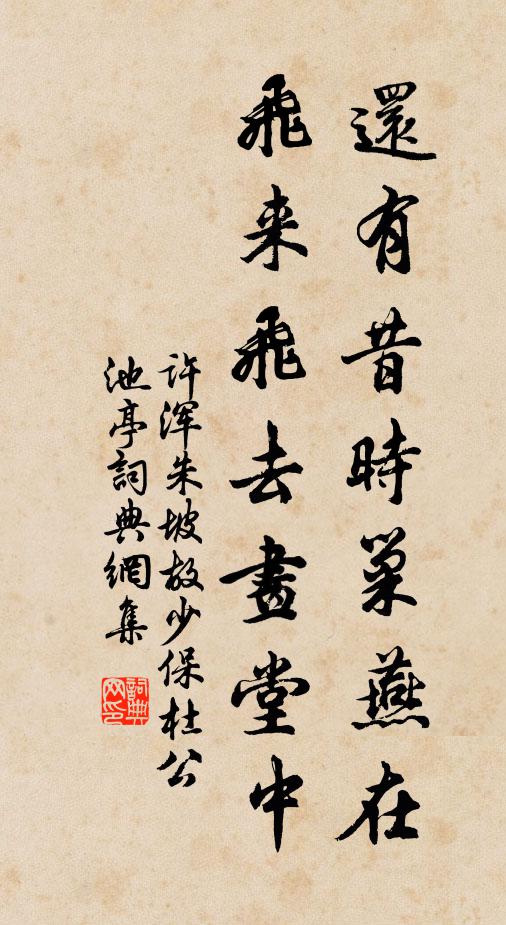 還有昔時巢燕在
飛来飛去畫堂中
許渾朱坡故少保杜公
池亭詞典網集
詞典
网印